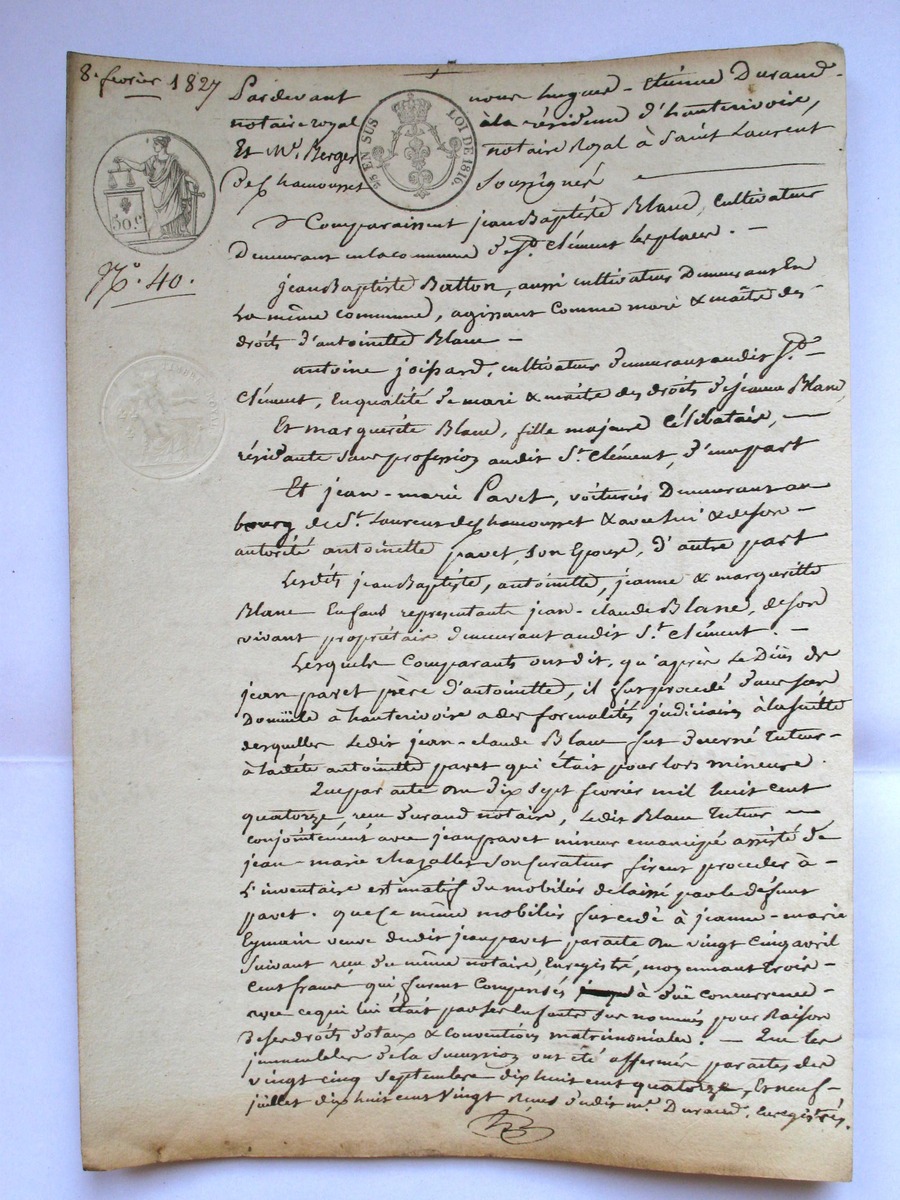 8. février 1827
Pardevant nous hugues-Etienne Durand
notaire royal à la résidence d'hauterivoire,
Et Me. Berger notaire Royal à Saint Laurent
De Chamousset soussignés
25 EN SUS LOI DE 1816.
50 c.
N.º 40.
Comparaissent jean Baptiste Blanc, cultivateur
Demeurant en la commune de St. Clément les places. -
jean Baptiste Batton, aussi cultivateur Demeurant En
La même commune, agissant Comme mari & maître des
droits d'antoinette Blanc -
antoine joissard, cultivateur demeurant audit St.
Clément, En qualité de mari & maître des droits de jeanne Blanc,
Et marguerite Blanc, fille majeure Célibataire,
résidante sans profession audit St. Clément, d'une part
Et jean-marie Pavet, voiturier Demeurant au
bourg de St. Laurent de Chamousset & avec lui & de son
autorité antoinette pavet, son Epouse, d'autre part
Lesdits jean Baptiste, antoinette, jeanne & marguerite
Blanc Enfants représentants jean-claude Blanc, de son
vivant propriétaire demeurant audit St. Clément. -
Lesquels Comparants ont dit, qu'après Le Décès de
jean pavet père d'antoinette, il fut procédé dans son
Domicile à hauterivoire a des formalités judiciaires à la suitte
desquelles Ledit jean-claude Blanc fut décerné tuteur
à ladite antoinette pavet qui était pour lors mineure.
Que par acte du dix sept février mil huit cent
quatorze, reçu Durand notaire, Ledit Blanc tuteur
conjointement avec jean pavet mineur émancipé assisté de
jean-marie chazalles son curateur firent procéder à
L'inventaire estimatif du mobilier délaissé par le défunt
pavet. que ce même mobilier fut cédé à jeanne-marie
Eymain veuve dudit jean pavet par acte du vingt cinq avril
suivant reçu du même notaire, Enregistré, moyennant trois
cent francs qui furent Compensés à düe concurrence
avec ce qui lui était par ses Enfants sus nommés pour Raison
de ses droits dotaux & Conventions matrimoniales. - Que les
jmmeubles de la succession ont été affermés par actes des
vingt cinq septembre dix huit cent quatorze, Et neuf
juillet dix huit cent vingt Reçus dudit me. Durand, Enregistrés.